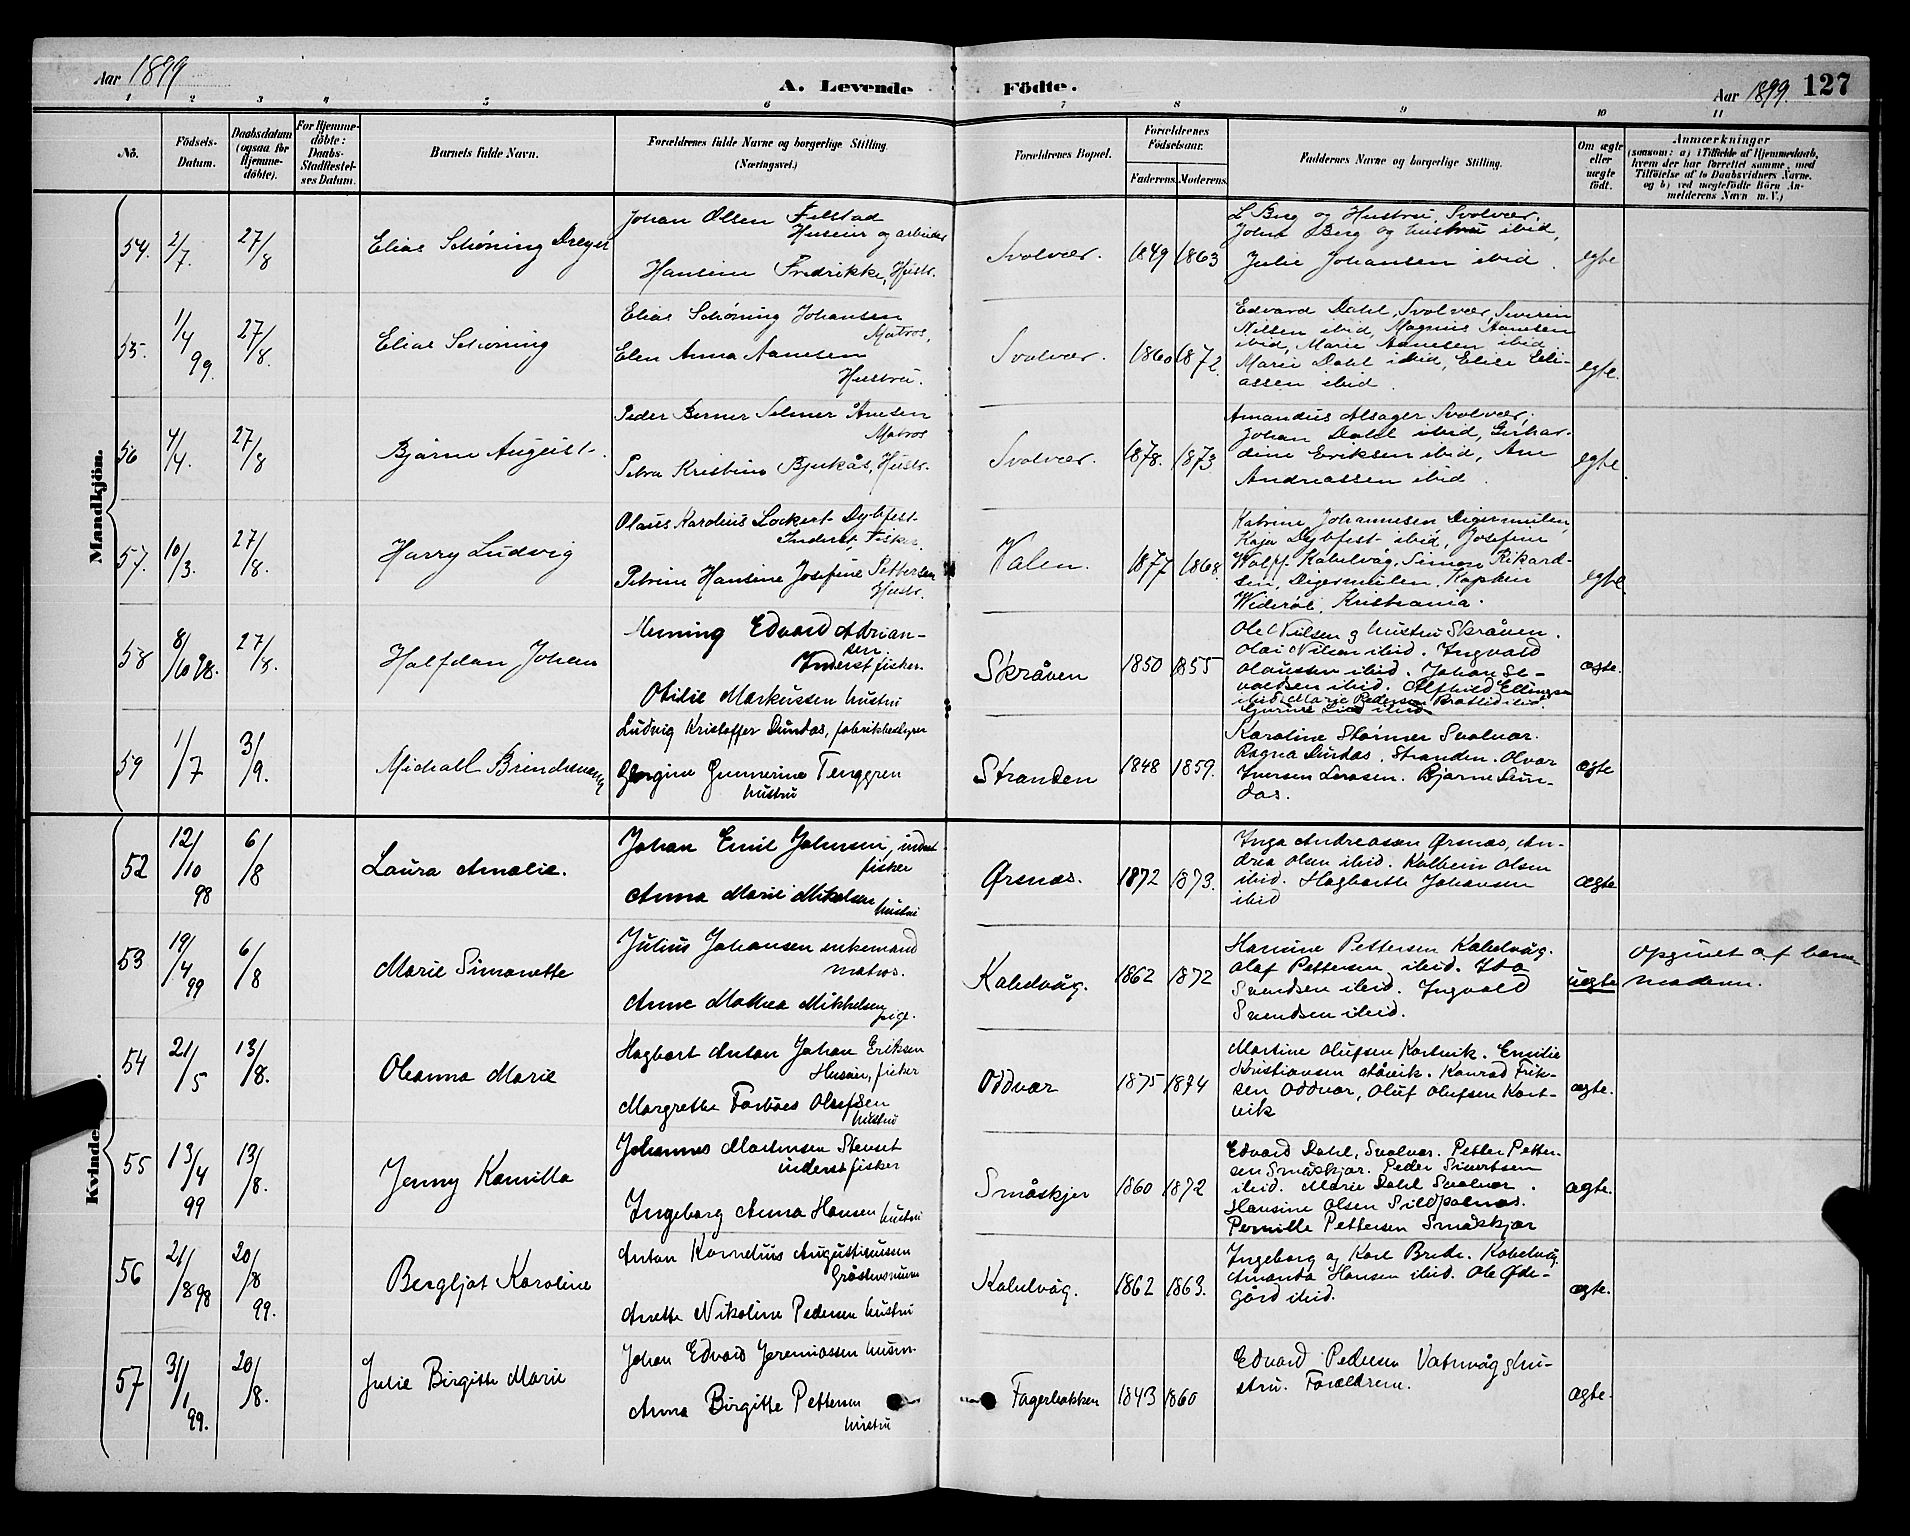 Aar 1899
A. Levende Födte.
Aar 1899. 127
1 2 3 4 5 6 7 8 9 10 11
No.
Födsels-Datum.
Daabsdatum (ogsaa for Hjemme-döbte).
For Hjemme-döbte: Daabs-Stadfæstel-ses Datum.
Barnets fulde Navn.
Forældrenes fulde Navne og borgerlige Stilling. (Næringsvei.)
Forældrenes Bopæl.
Forældrenes Födselsaar.
Faderens. Moderens.
Faddernes Navne og borgerlige Stilling.
Om ægte eller uægte födt.
Anmærkninger
(saasom: a) i Tilfælde af Hjemmedaab,
hvem der har forrettet samme, med
Tilföielse af to Daabsvidners Navne,
og b) ved uægtefödte Börn An-
melderens Navn m. V.)
Mandkjön.
54. 2/7. 27/8 Elias Schøning Dreyer
Johan Olsen Filstad
Huseier og arbeider
Hansine Fredrikke, Hustr.
Svolvær. 1849 1863
L Berg og Hustru, Svolvær,
Joht Berg og hustru ibid,
Julie Johansen ibid.
egte
55. 1/4 99. 27/8. Elias Schøning
Elias Schøning Johansen
Matros,
Elen Anna Aanesen
Hustru.
Svolvær. 1860 1872.
Edvard Dahl, Svolvær, Siverin
Nilsen ibid, Magnus Aanesen
ibid, Marie Aanesen ibid
Marie Dahl ibid, Elise Eli-
assen ibid.
egte.
56 4/4. 27/8 Bjarne August
Peder Berner Selmer Ånesen
Matros
Petra Kristine Bjerkås, Hustr.
Svolvær. 1878. 1873
Amandus Alsager Svolvær,
Johan Dahl ibid, Gerhar-
dine Eriksen ibid, Ane
Andreassen ibid.
egte.
57. 10/3. 27/8. Harry Ludvig
Olaus Karolius Lockert Dybfest
Inderst, Fisker.
Petrine Hansine Josefine Pettersen
Hustr.
Valen. 1877 1868.
Katrine Johannesen Digermulen,
Kaja Dybfest ibid, Josefine
Wolff Kabelvåg, Simon Rikard-
sen, Digermulen,
Widerøe, Kristiania.
egte.
58 8/10 98. 27/8. Halfdan Johan
Henning Edvard Adrian-
sen
Inderst fisker.
Otilie Markussen hustru
Skråven 1850 1855
Ole Nilsen og hustru Skråven.
Olai Nilsen ibid. Ingvald
Olaussen ibid. Johan Si-
valdsen ibid. Alfhild Ellingsen
ibid. Marie Pedersen Bratlid ibid.
ægte.
59 1/7 3/9. Michael Brinchmann
Ludvig Kristoffer Dundas, fabrikbestyrer
Georgine Gunnerine Tenggren
hustru
Stranden 1848 1859.
Karoline Størmer Svolvær.
Ragna Dundas, Stranden. Alvar
Iversen Lerosen. Bjarne Dun-
das.
ægte
Kvinde
52 12/10 98 6/8 Laura Amalie.
Johan Emil Johnsen, inderst
fisker
Anna Marie Mikalsen hustru
Ørsnæs. 1872 1873.
Inga Andreasen Ørsnæs, An-
drea Olsen ibid. Kalbein Olsen
ibid. Hagbarth Johansen
ibid
ægte
53 19/4 99 6/8 Marie Simonette
Julius Johansen enkemand
matros.
Anne Mathea Mikkelsen
pige.
Kabelvåg. 1862 1872
Hansine Pettersen Kabelvåg.
Olaf Pettersen ibid. Ida
Svendsen ibid. Ingvald
Svendsen ibid.
uægte
Opgivet af barne-
moderen.
54 21/5 13/8. Oleanna Marie
Hagbart Anton Johan Eriksen
Huseier, fisker
Margrethe Olufsen
hustru
Oddvær 1875 1874
Martine Olufsen Kartvik. Emilie
Kristiansen Kartvik. Konrad Erik-
sen Oddvær, Oluf Olufsen Kart-
vik
ægte.
55 13/4 99 13/8. Jenny Kamilla
Johannes Martinsen Stenset
inderst fisker
Ingeborg Anna Hansen hustru
Småskjær 1860 1872
Edvard Dahl, Svolvær. Petter Petter-
sen Småskjær. Peder Sivertsen
ibid. Marie Dahl Svolvær.
Hansine Olsen Sildpolnæs.
Pernille Pettersen Småskjær
ægte.
56 21/8 98 20/8 99. Bergljot Karoline
Anton Kornelius Augustinussen
Anette Nikoline Pedersen hustru
Kabelvåg. 1862 1863.
Ingeborg og Karl Brede. Kabelvåg.
Amanda Hansen ibid. Ole Øde-
gård ibid.
ægte.
57 31/1 99. 20/8. Julie Birgitte Marie
Johan Edvard Jeremiassen husm.
Anna Birgitte Pettersen
hustru
Fagerbakken 1843 1860
Edvard Pedersen Vatnvåg hu-
stru. Forældrene.
ægte.